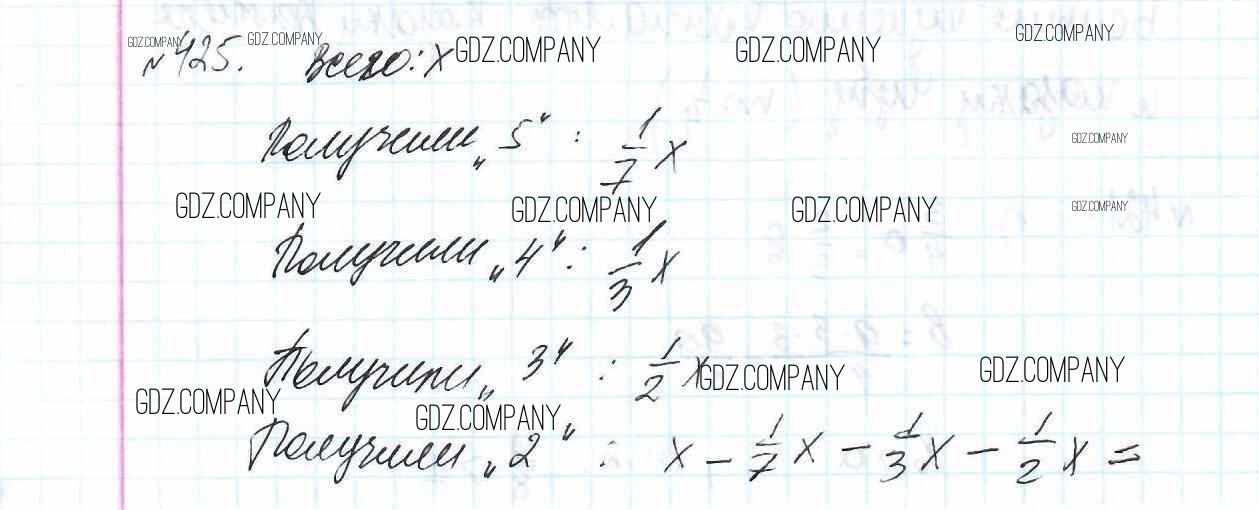 №425. Всего: x
Получили „5“ : 1/7 x
Получили „4“ : 1/3 x
Получили „3“ : 1/2 x
Получили „2“ : x - 1/7 x - 1/3 x - 1/2 x =
GDZ.COMPANY GDZ.COMPANY GDZ.COMPANY GDZ.COMPANY GDZ.COMPANY
GDZ.COMPANY
GDZ.COMPANY GDZ.COMPANY GDZ.COMPANY GDZ.COMPANY
GDZ.COMPANY GDZ.COMPANY
GDZ.COMPANY GDZ.COMPANY